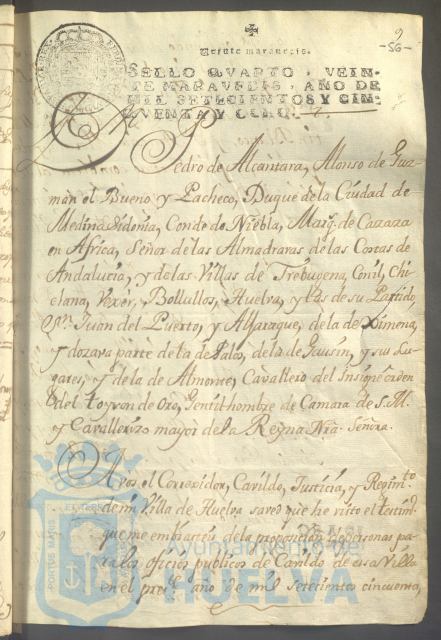 9
-56-
Veinte maravedis.
SELLO QVARTO, VEIN-
TE MARAVEDIS, AÑO DE
MIL SETECIENTOS Y CIN-
QVENTA Y OCHO.
Pedro de Alcantara, Alonso de Guz-
man el Bueno y Pacheco, Duque de la Ciudad de
Medina Sidonia, Conde de Niebla, Marq. de Cazaza
en Africa, Señor de las Almadravas de las Costas de
Andalucia, y de las Villas de Trebugena, Conil, Chi-
clana, Vexer, Bollullos, Huelva, y las de su Partido,
Sn. Juan del Puerto, y Alfaraque, de la de Ximena,
y dozava parte de la de Palos, de la de Gausin, y sus Lu-
gares, y de la de Almonte, Cavallero del Insigne orden
del Toyson de Oro, Gentilhombre de Camara de S. M.
y Cavallerizo mayor de la Reyna Nra. Señora.
A vos el Correxidor, Cavildo, Justicia, y Regimto
de mi Villa de Huelva saved que he visto el testim
que me embiasteis de la proposicion de personas pa-
ra los oficios publicos de Cavildo de essa Villa
en el preste año de mil setecientos cincuenta,
PORTUS MARIS
Ayuntamiento de
HUELVA